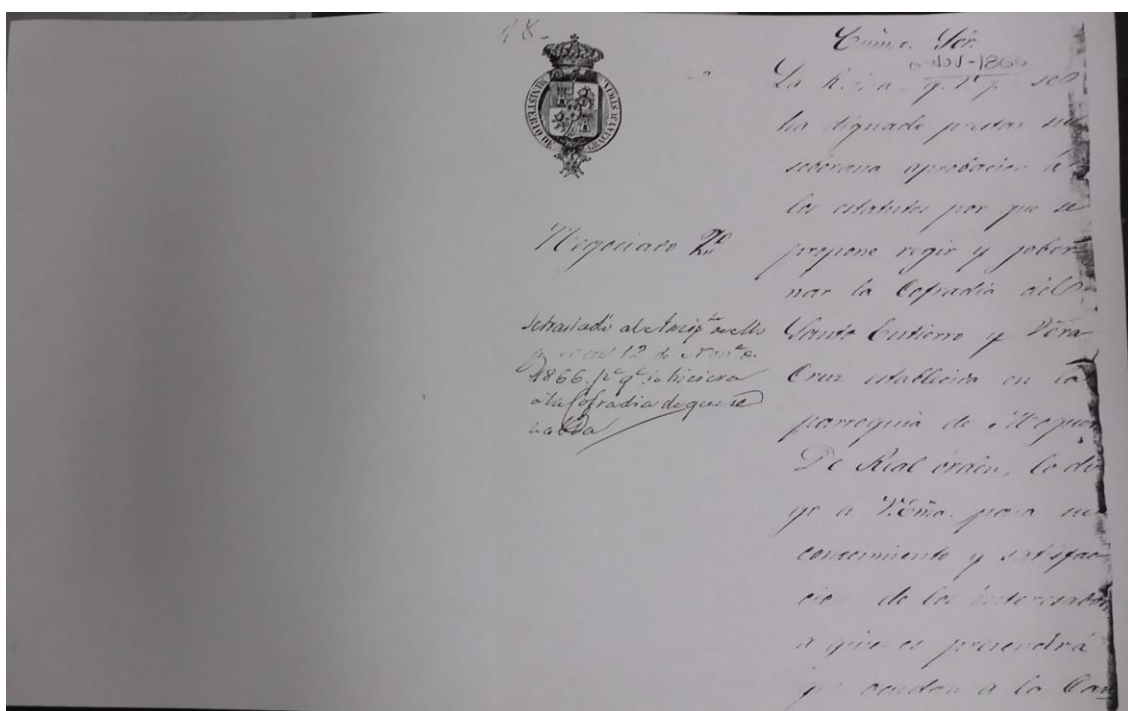 18.
MINISTERIO DE GRACIA Y JUSTICIA
Negociado 2º
al de
12 de Nov.e
1866. pª qe lo hiciera
a la Cofradia de que se
habla
Emmo. Sor.
Oct-1866
La Reina q. D. g. se
ha dignado prestar su
soberana aprobacion á
los estatutos por que se
propone regir y gober-
nar la Cofradia del
Santo Entierro y Vera
Cruz establecida en la
parroquia de Moguer
De Real órden, lo di
go a V. Ema. para su
conocimiento y satisfac
cion de los interesados
a quienes prevendrá
que acudan a la Can